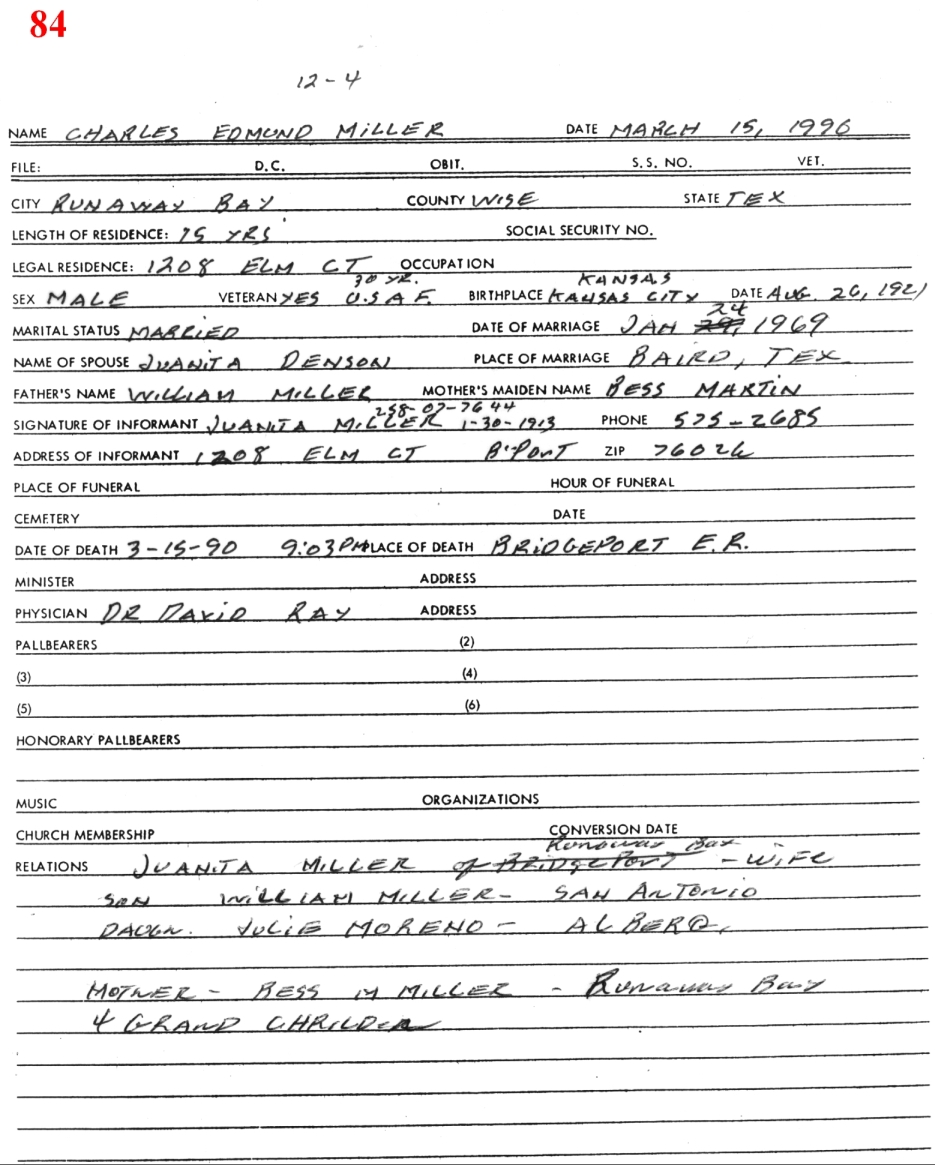 84
12-4
NAME CHARLES EDMUND MILLER DATE MARCH 15, 1996
FILE: D.C. OBIT. S.S. NO. VET.
CITY RUNAWAY BAY COUNTY WISE STATE TEX
LENGTH OF RESIDENCE: 15 YRS SOCIAL SECURITY NO.
LEGAL RESIDENCE: 1208 ELM CT OCCUPATION
30 YR. KANSAS
SEX MALE VETERAN YES U.S.A.F. BIRTHPLACE KANSAS CITY DATE AUG. 26, 1921
24
MARITAL STATUS MARRIED DATE OF MARRIAGE JAN 29, 1969
NAME OF SPOUSE JUANITA DENSON PLACE OF MARRIAGE BAIRD, TEX
FATHER'S NAME WILLIAM MILLER MOTHER'S MAIDEN NAME BESS MARTIN
258-07-7644
SIGNATURE OF INFORMANT JUANITA MILLER 1-30-1913 PHONE 575-2685
ADDRESS OF INFORMANT 1208 ELM CT B'PORT ZIP 76026
PLACE OF FUNERAL HOUR OF FUNERAL
CEMETERY DATE
DATE OF DEATH 3-15-90 9:03 PM PLACE OF DEATH BRIDGEPORT E.R.
MINISTER ADDRESS
PHYSICIAN DR DAVID RAY ADDRESS
PALLBEARERS (2)
(3) (4)
(5) (6)
HONORARY PALLBEARERS
MUSIC ORGANIZATIONS
CHURCH MEMBERSHIP CONVERSION DATE
Runaway Bay
RELATIONS JUANITA MILLER of BRIDGEPORT - WIFE
SON WILLIAM MILLER- SAN ANTONIO
DAUGH. JULIE MORENO - ALBERQ.
MOTHER - BESS M MILLER - Runaway Bay
4 GRAND CHRILDEN